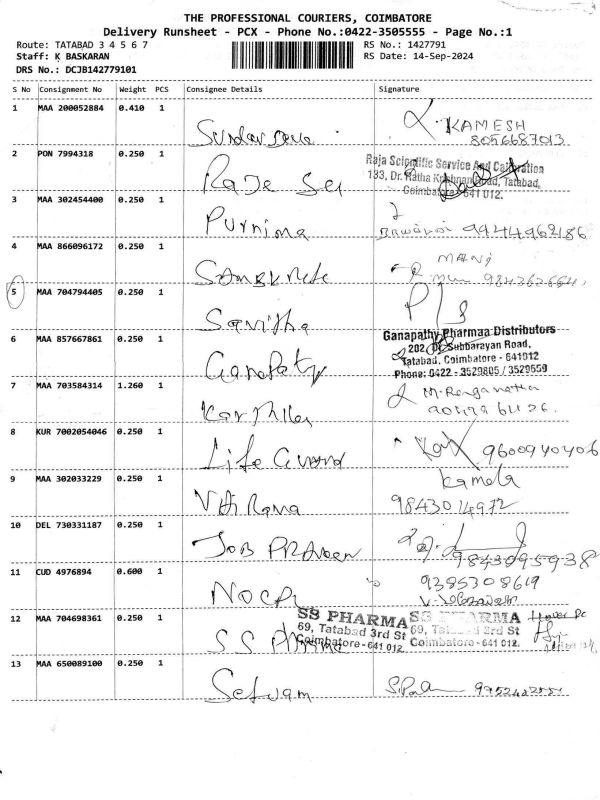 THE PROFESSIONAL COURIERS, COIMBATORE
Delivery Runsheet - PCX - Phone No.:0422-3505555 - Page No.:1
Route: TATABAD 3 4 5 6 7 RS No.: 1427791
Staff: K BASKARAN RS Date: 14-Sep-2024
DRS No.: DCJB142779101
S No Consignment No Weight PCS Consignee Details Signature
1 MAA 200052884 0.410 1 KAMESH
8056687013
2 PON 7994318 0.250 1 Raja Scientific Service And Calibration
133, Dr. Ratha Krishnan Road, Tatabad,
Coimbatore - 641 012.
3 MAA 302454400 0.250 1 Purnima
99444962186
4 MAA 866096172 0.250 1 MANI
5 MAA 704794405 0.250 1 Savitha
6 MAA 857667861 0.250 1 Ganapaty Ganapathy Pharmaa Distributors
202, Dr. Subbarayan Road,
Tatabad, Coimbatore - 641012
Phone: 0422 - 3529805 / 3529659
7 MAA 703584314 1.260 1
8 KUR 7002054046 0.250 1 Life Guard 9600940406
9 MAA 302033229 0.250 1 Kamala
9843014972
10 DEL 730331187 0.250 1 JOB PRAVeen
9843095938
11 CUD 4976894 0.600 1 NOCPL 9385308619
12 MAA 704698361 0.250 1 S S Pharma SS PHARMA SS PHARMA
69, Tatabad 3rd St 69, Tatabad 3rd St
Coimbatore-641 012. Coimbatore-641 012.
13 MAA 650089100 0.250 1 Selvam